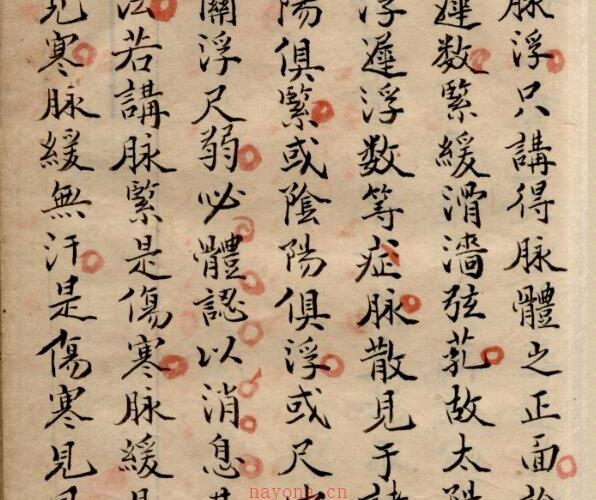 脉浮只講得脉體之正面
遲数緊緩滑濇弦芤故太陽
浮遲浮数等症脉散見于諸
陽俱緊或陰陽俱浮或尺
關浮尺弱必體認以消息其
法若講脉緊是傷寒脉緩是
見寒脉緩無汗是傷寒見
nayona.cn